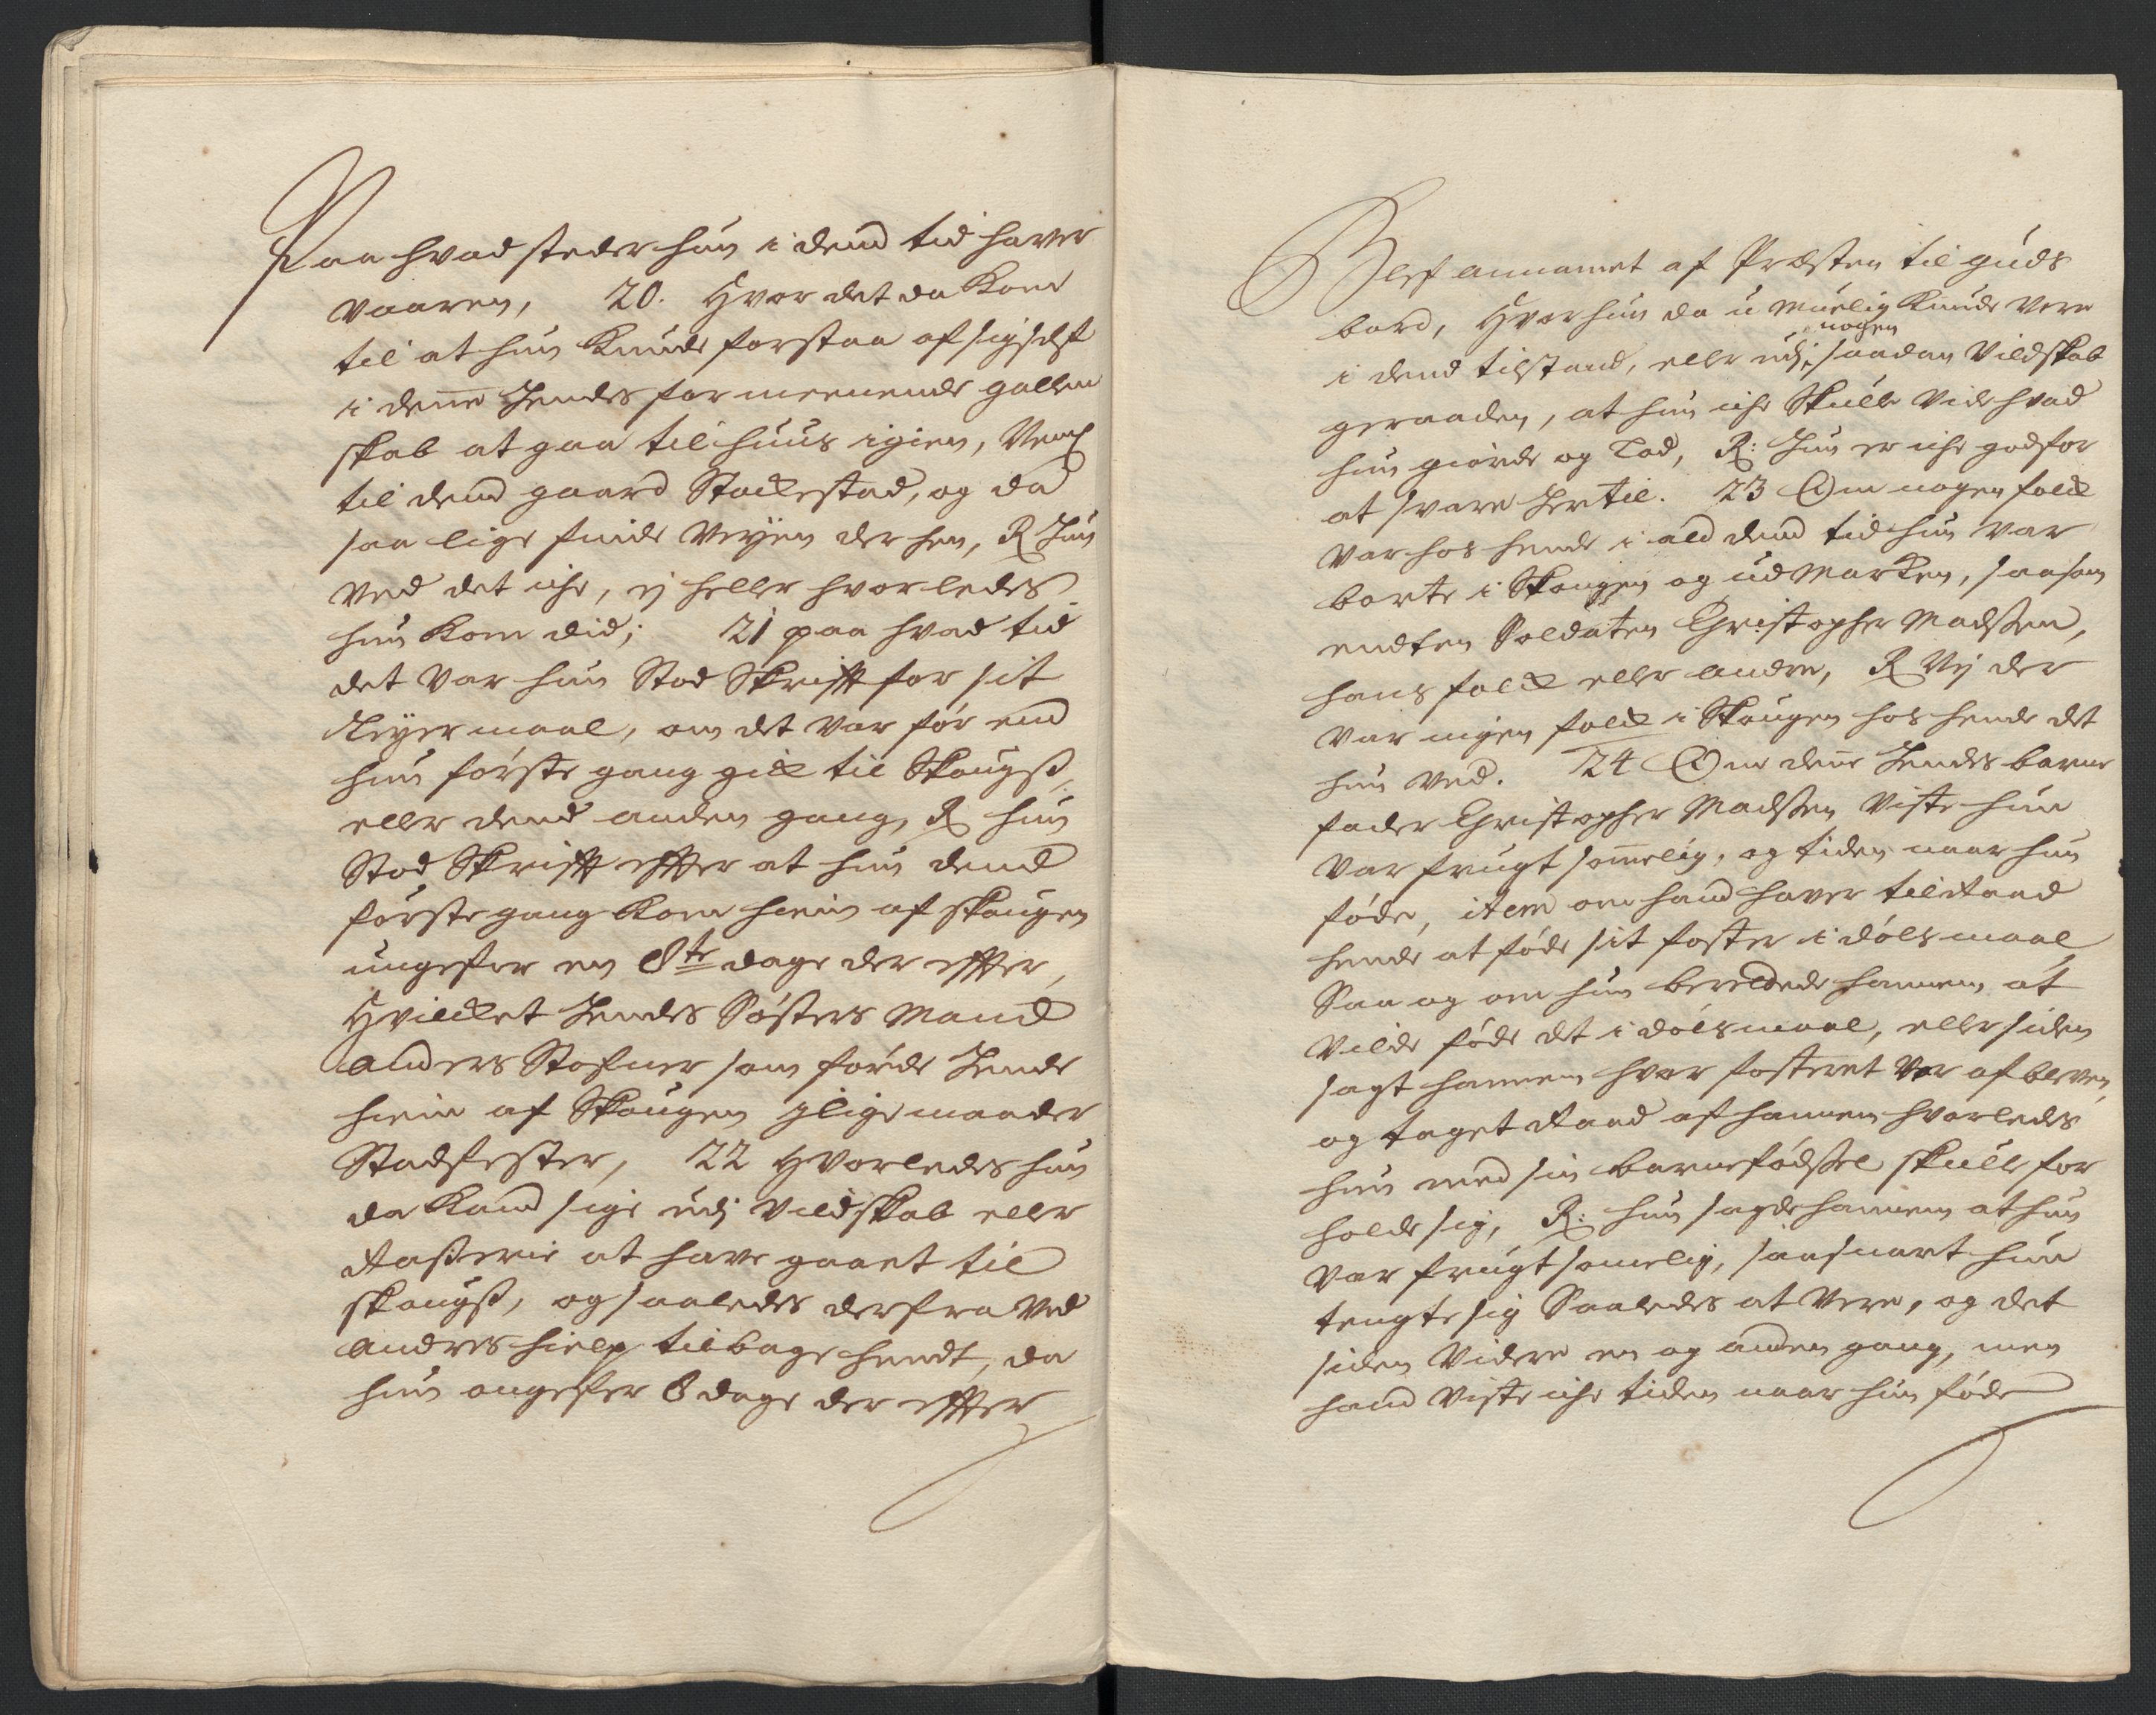 Paa hvad steder hun i dend tid haver
vaaren, 20. Hvor det da kom
til at hun kunde forstaa af sig self
i denne hendes formeenende gallen
skab at gaa til huus igien, Neml
til dend gaard Stockestad, og da
saa lige finde veyen der hen, R Hun
ved det iche, ej heller hvorledes
hun kom did; 21 paa hvad tid
det var hun stod Skrifft for sit
Leyermaal, om det var før end
hun første gang gik til Skougs,
eller dend anden gang, R hun
stod Skrifft effter at hun dend
første gang kom hiem af skougen
ungefer en 8te dage der effter,
Hvilcket hendes Søsters Mand
Anders Stofner som førde hende
hiem af Skougen j lige maader
Stadfester, 22 Hvorledes hun
da kand sige udj vildskab eller
Raßerie at have gaaet til
skougs, og saaledes derfra ved
andres hielp tilbage hendt, da
hun ongefer 8 dage der effter
Blef annamet af Præsten til guds
bord, Hvor hun da u muelig kunde vere
i dend tilstand, eller udj nogen saadan Vildskab
geraaden, at hun iche skulle vide hvad
hun giorde og lod, R: Hun er iche god for
at svare hertil. 23 Om nogen folck
var hos hende i ald dend tid hun var
borte i Skougen og udmarken, saasom
endten Soldaten Christopher Madsen,
hans folck eller andre, R Nej der
var ingen folck i Skougen hos hende det
hun ved. 24 Om denne hendes barne
fader Christopher Madsen viste hun
var frugtsommelig, og tiden naar hun
føde, item om hand haver tilraad
hende at føde sit foster i dølsmaal,
Saa og om hun berettede hannem at
vilde føde det i dølsmaal, eller siden
sagt hannem hvor fosteret var af bleven,
og taget Raad af hannem hvorledes
hun med sin barnefødsel skulle for
holde sig, R: hun sagde hannem at hun
var frugtsomelig, saasnart hun
tengte sig Saaledes at vere, og det
siden videre en og anden gang, men
hand viste iche tiden naar hun føde